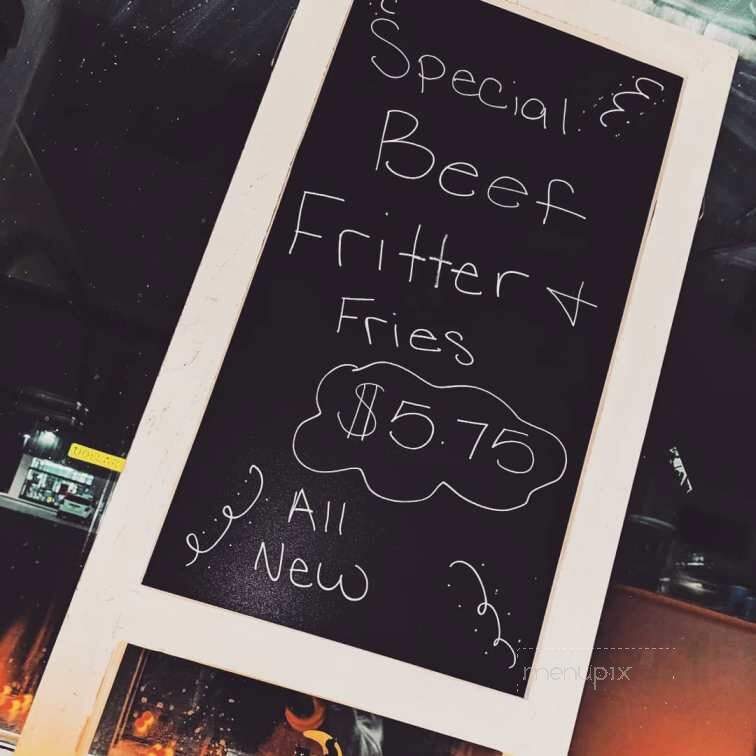 Special
Beef
Fritter +
Fries
$5.75
All
New
menupix